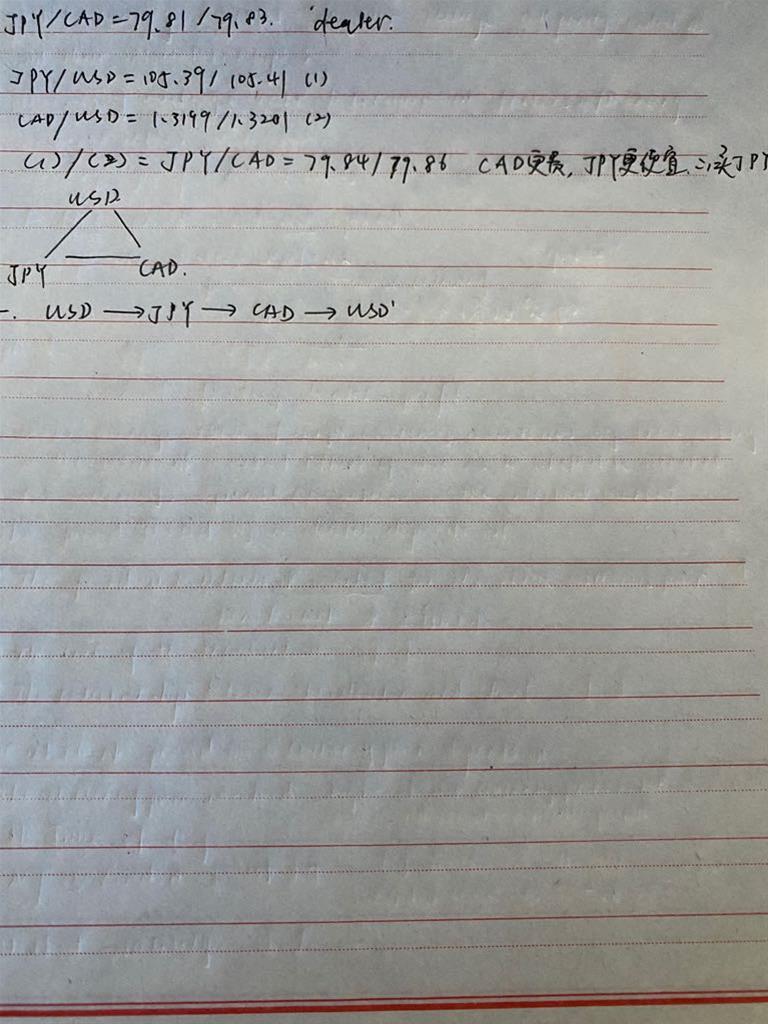 JPY/CAD = 79.81/79.83. dealer.
JPY/USD = 105.39/105.41 (1)
CAD/USD = 1.3199/1.3201 (2)
(1)/(2) = JPY/CAD = 79.84/79.86 CAD更贵, JPY更便宜 ∴买JPY
USD
JPY CAD.
USD → JPY → CAD → USD'